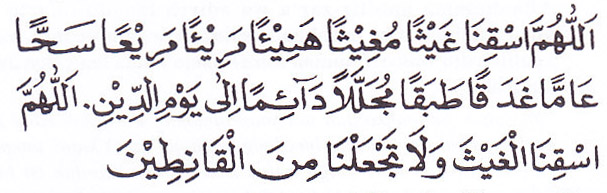 اَللّٰهُمَّ اسْقِنَا غَيْثًا مُغِيْثًا هَنِيْئًا مَرِيْئًا مَرِيْعًا سَحًّا
عَامًّا غَدَقًا طَبَقًا مُجَلَّلًا دَآئِمًا اِلٰى يَوْمِ الدِّيْنِ. اَللّٰهُمَّ
اسْقِنَا الْغَيْثَ وَلَا تَجْعَلْنَا مِنَ الْقَانِطِيْنَ